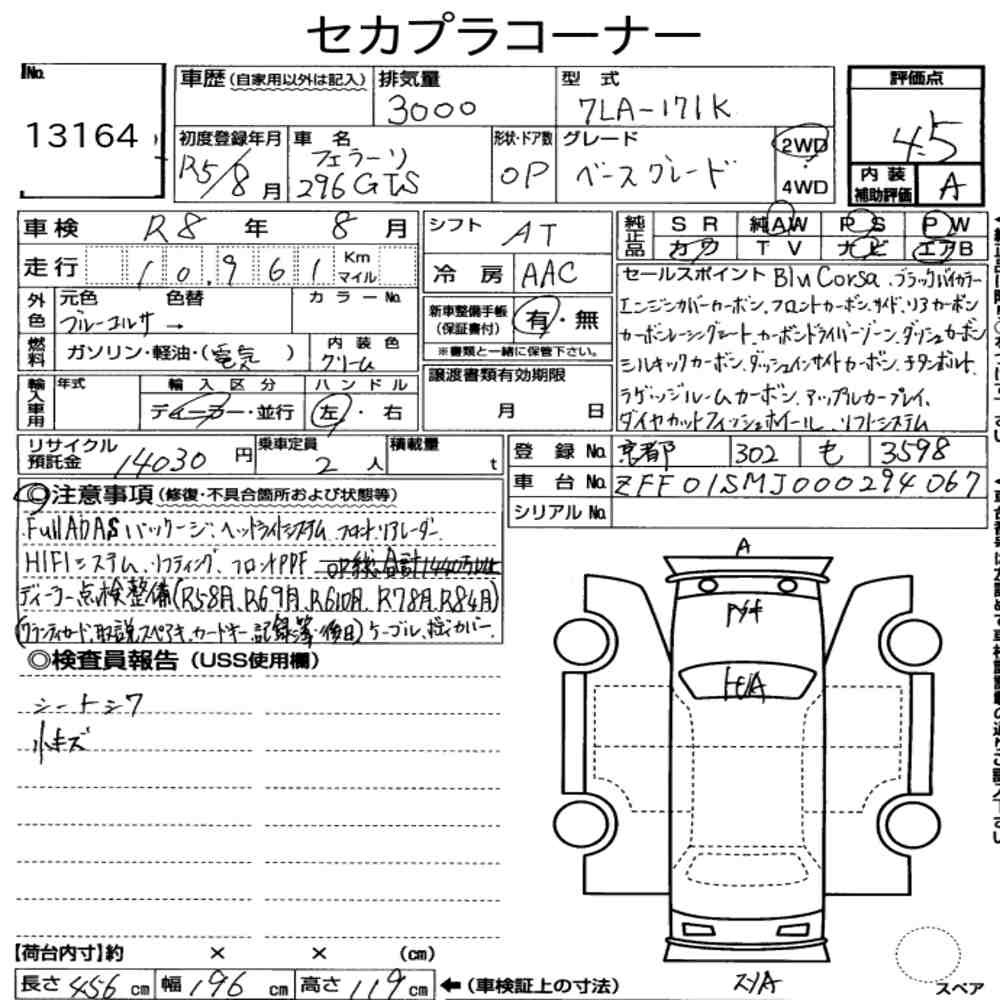 セカプラコーナー
No.
13164
車歴 (自家用以外は記入)
排気量
3000
型式
7LA-171K
評価点
4.5
初度登録年月
R5/8月
車名
フェラーリ
296GTS
形状・ドア数
OP
グレード
ベースグレード
2WD
4WD
内装
補助評価
A
車検 R8年 8月
シフト AT
純正品
SR 純AW PS PW
カワ TV ナビ エアB
走行 10,961 Km
マイル
冷房 AAC
外色
元色 色替
ブルーコルサ →
カラーNo.
新車整備手帳
(保証書付)
有・無
※書類と一緒に保管下さい。
燃料
ガソリン・軽油・(電気)
内装色
クリーム
輸入車用
年式
輸入区分
ディーラー・並行
ハンドル
左・右
譲渡書類有効期限
月 日
セールスポイント Blu Corsa、ブラックバイカラー
エンジンカバーカーボン、フロントカーボン、サイド、リアカーボン
カーボンレーシングシート、カーボンドライバーゾーン、ダッシュカーボン
シルキックカーボン、ダッシュインサイトカーボン、チタンボルト、
ラゲッジルームカーボン、アップルカープレイ、
ダイヤカットフィッシュホイール、リフトシステム
リサイクル
預託金
14030円
乗車定員
2人
積載量
t
登録No. 京都 302 も 3598
車台No. ZFF01SMJ000294067
シリアルNo.
◎注意事項 (修復・不具合箇所および状態等)
Full ADASパッケージ、ヘッドライトシステム、フロント、リアレーダー、
HIFIシステム、リフティング、フロントPPF OP総合計1440万以上
ディーラー点検整備(R5 8月、R6 9月、R6 10月、R7 8月、R8 4月)
(ワランティカード、取説、スペアキー、カードキー、記録簿等・後日)ケーブル、構カバー
◎検査員報告 (USS使用欄)
シートシワ
小キズ
A
トビA
スリA
【荷台内寸】約 × × (cm)
長さ 456 cm 幅 196 cm 高さ 119 cm ←(車検証上の寸法)
スペア